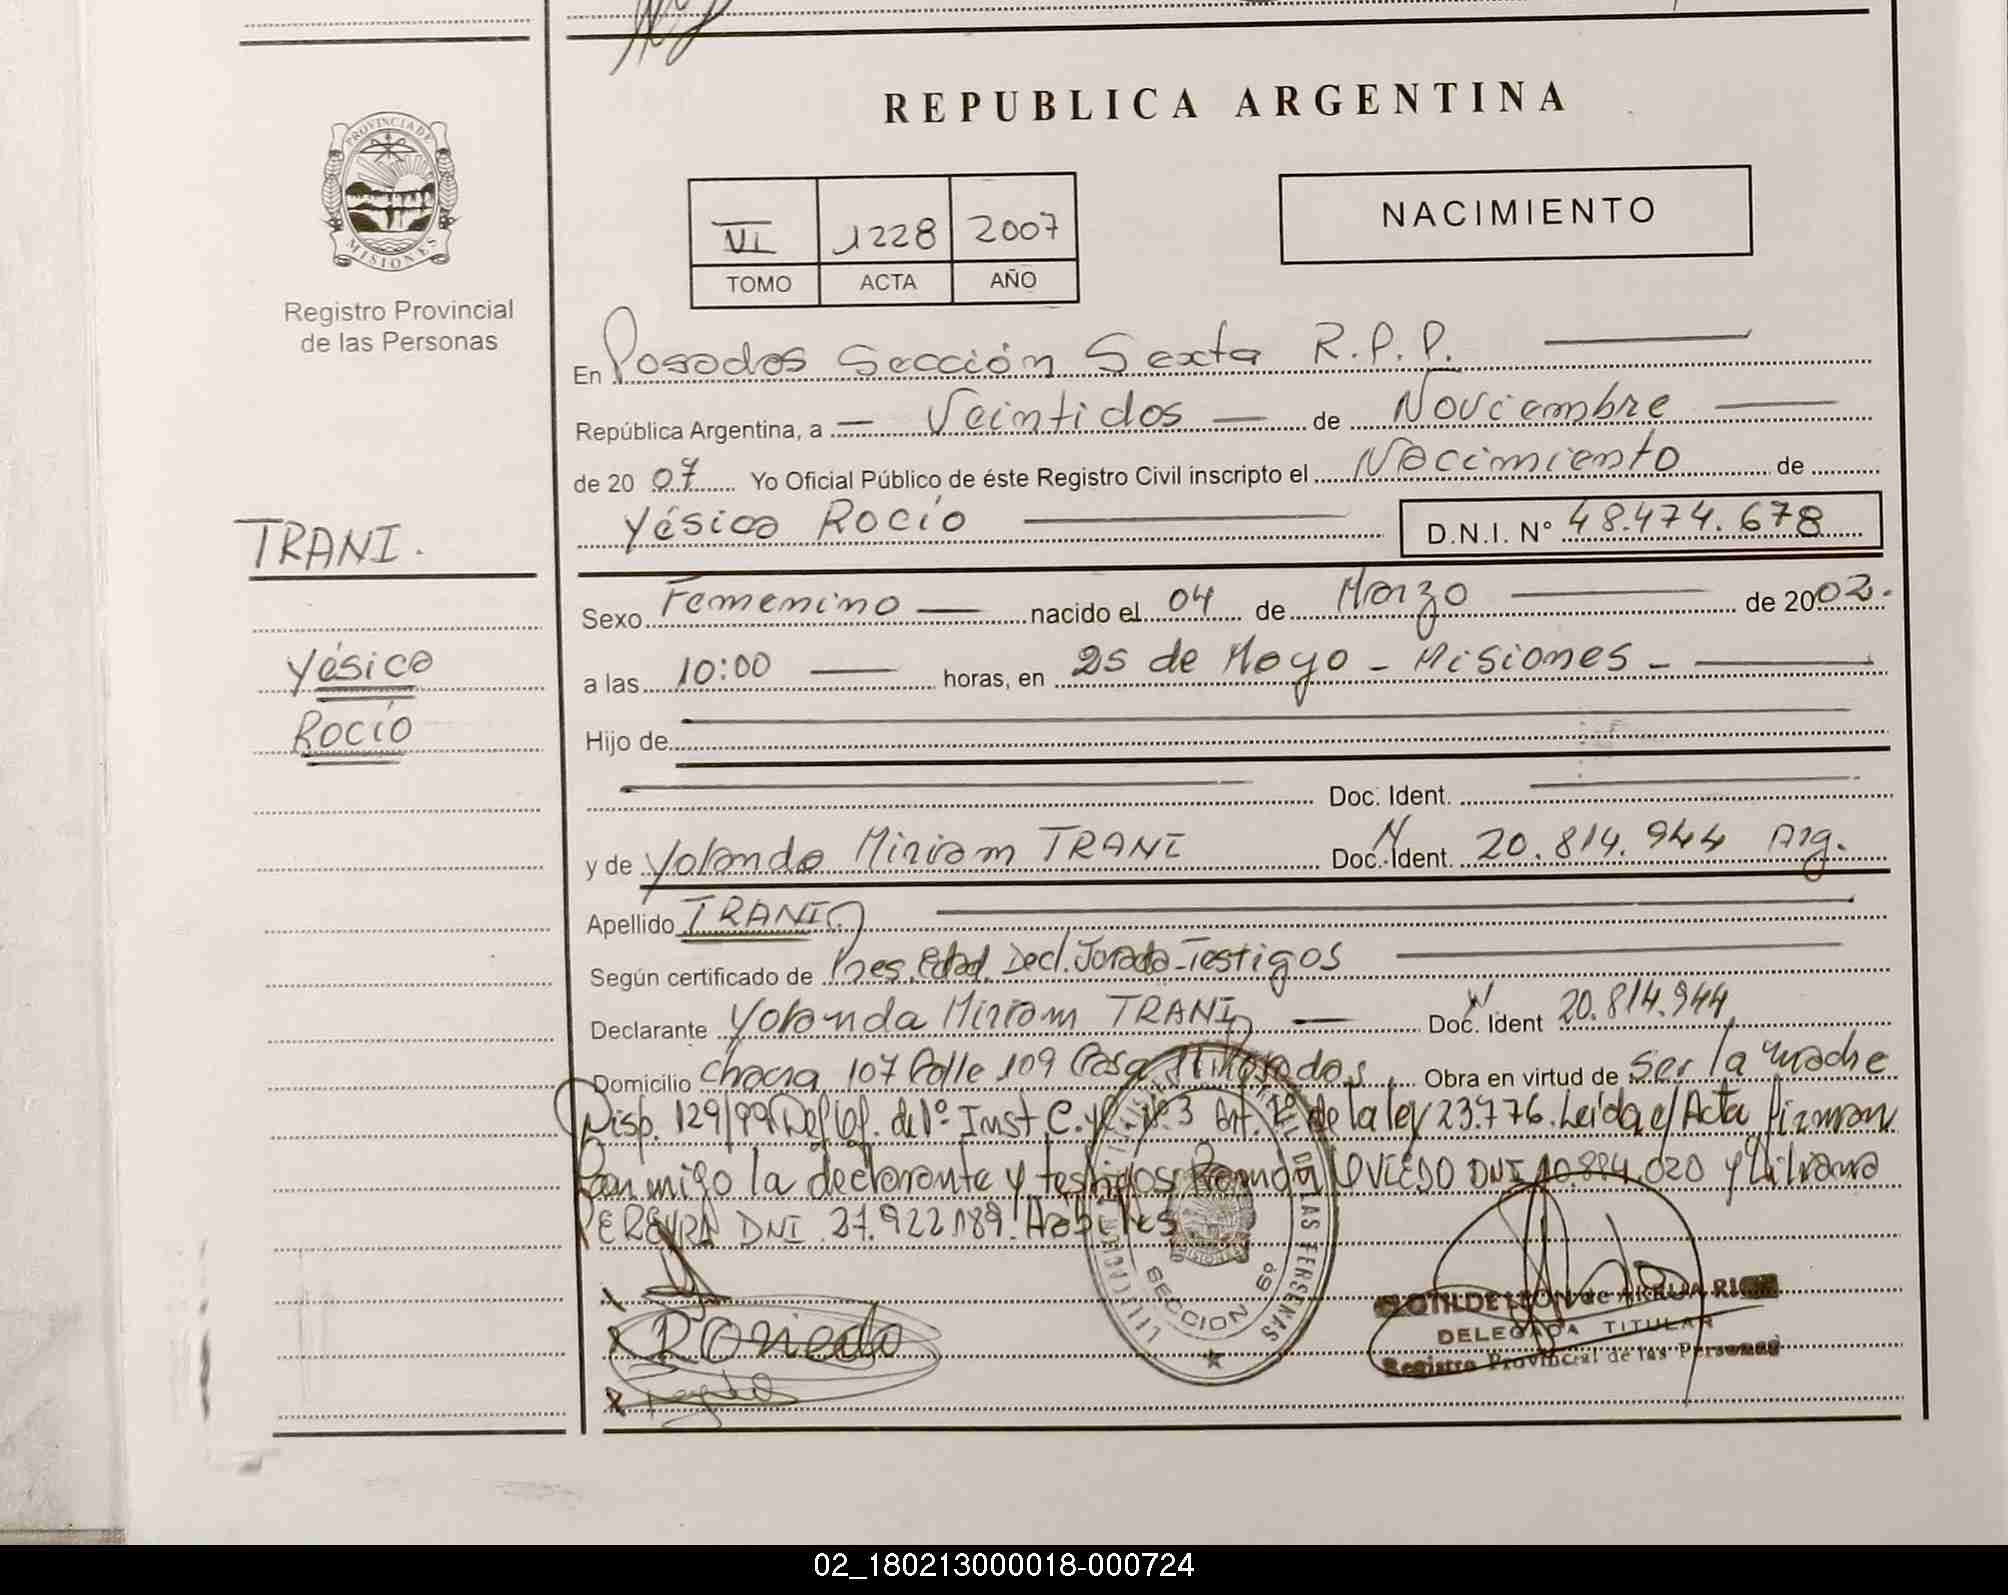 REPUBLICA ARGENTINA
PROVINCIA DE
MISIONES
Registro Provincial
de las Personas
VI 1228 2007
TOMO ACTA AÑO
NACIMIENTO
En Posadas Sección Sexta R.P.P.
República Argentina, a Veintidos de Noviembre
de 20 07 Yo Oficial Público de éste Registro Civil inscripto el Nacimiento de
Yésica Rocío D.N.I. Nº 48.474.678
TRANI.
Yésica
Rocío
Sexo Femenino nacido el 04 de Marzo de 2002.
a las 10:00 horas, en 25 de Mayo - Misiones -
Hijo de
Doc. Ident.
y de Yolanda Miriam TRANI Doc. Ident. 20.814.944 Arg.
Apellido TRANI
Según certificado de Pres. Edad. Decl. Jurada-Testigos
Declarante Yolanda Miriam TRANI Doc. Ident 20.814.944
Domicilio Chacra 107 Calle 109 Casa Posadas Obra en virtud de Ser la madre
Disp. 129/99 Def. Of. de 1º Inst. C. y C. Nº 3 Art. 2º de la ley 23.776. Leida e/ Acta firman
Conmigo la declarante y testigos Ramona OVIEDO DNI 10.884.020 y Liliana
PEREYRA DNI 27.922.189. Habiles
SECCION 6º
DE LAS PERSONAS
CLOTILDE LEON de
DELEGADA TITULAR
Registro Provincial de las Personas
02_180213000018-000724